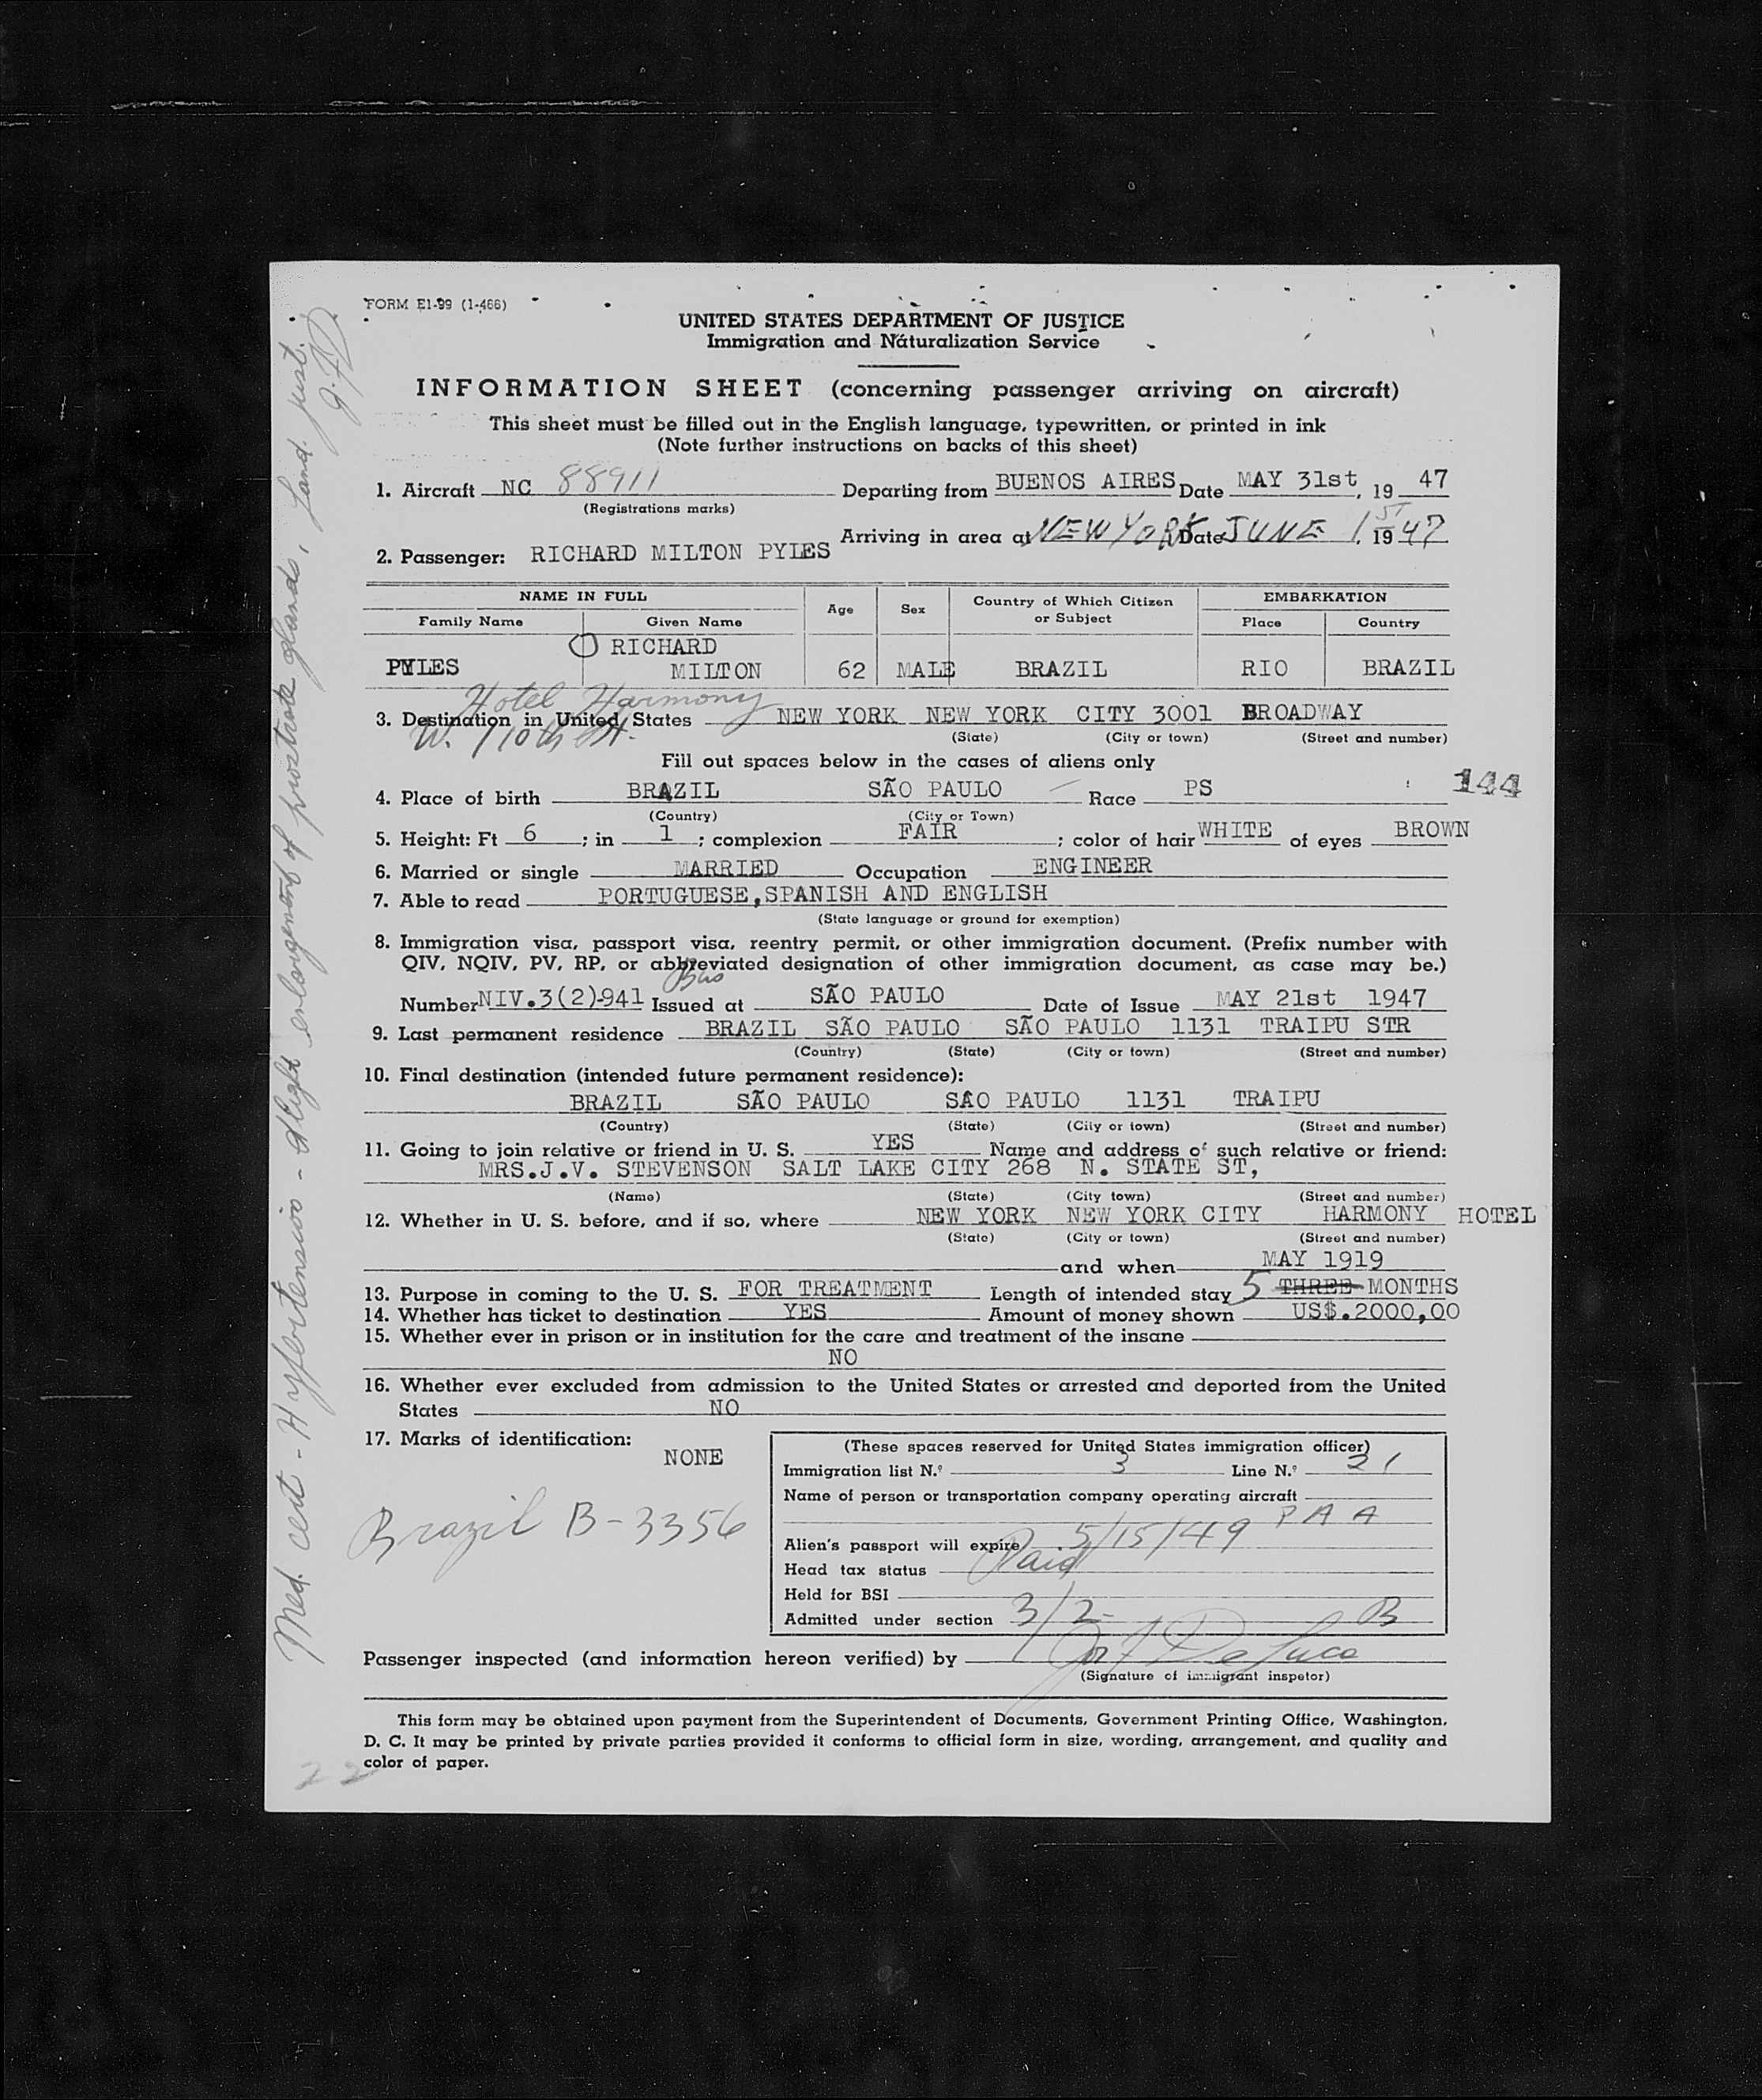 FORM E1-99 (1-466)
UNITED STATES DEPARTMENT OF JUSTICE
Immigration and Naturalization Service
INFORMATION SHEET (concerning passenger arriving on aircraft)
This sheet must be filled out in the English language, typewritten, or printed in ink
(Note further instructions on backs of this sheet)
1. Aircraft NC 88911 Departing from BUENOS AIRES Date MAY 31st, 19 47
(Registrations marks)
Arriving in area at NEW YORK Date JUNE 1ST, 19 47
2. Passenger: RICHARD MILTON PYLES
NAME IN FULL Age Sex Country of Which Citizen or Subject EMBARKATION
Family Name Given Name Place Country
RICHARD
PYLES MILTON 62 MALE BRAZIL RIO BRAZIL
Hotel Harmony
3. Destination in United States NEW YORK NEW YORK CITY 3001 BROADWAY
W. 110th St.
(State) (City or town) (Street and number)
Fill out spaces below in the cases of aliens only
144
4. Place of birth BRAZIL SÃO PAULO Race PS
(Country) (City or Town)
5. Height: Ft 6 ; in 1 ; complexion FAIR ; color of hair WHITE of eyes BROWN
6. Married or single MARRIED Occupation ENGINEER
7. Able to read PORTUGUESE,SPANISH AND ENGLISH
(State language or ground for exemption)
8. Immigration visa, passport visa, reentry permit, or other immigration document. (Prefix number with
QIV, NQIV, PV, RP, or abbreviated designation of other immigration document, as case may be.)
Number NIV.3(2)-941 Issued at SÃO PAULO Date of Issue MAY 21st 1947
9. Last permanent residence BRAZIL SÃO PAULO SÃO PAULO 1131 TRAIPU STR
(Country) (State) (City or town) (Street and number)
10. Final destination (intended future permanent residence):
BRAZIL SÃO PAULO SÃO PAULO 1131 TRAIPU
(Country) (State) (City or town) (Street and number)
11. Going to join relative or friend in U. S. YES Name and address of such relative or friend:
MRS.J.V. STEVENSON SALT LAKE CITY 268 N. STATE ST,
(Name) (State) (City town) (Street and number)
12. Whether in U. S. before, and if so, where NEW YORK NEW YORK CITY HARMONY HOTEL
(State) (City or town) (Street and number)
and when MAY 1919
13. Purpose in coming to the U. S. FOR TREATMENT Length of intended stay 5 THREE MONTHS
14. Whether has ticket to destination YES Amount of money shown US$.2000,00
15. Whether ever in prison or in institution for the care and treatment of the insane
NO
16. Whether ever excluded from admission to the United States or arrested and deported from the United
States NO
17. Marks of identification:
NONE
Brazil B-3356
(These spaces reserved for United States immigration officer)
Immigration list N.º 3 Line N.º 21
Name of person or transportation company operating aircraft
PAA
Alien's passport will expire 5/15/49
Head tax status Paid
Held for BSI
Admitted under section 3/2- B
Passenger inspected (and information hereon verified) by De Luca
(Signature of immigrant inspetor)
This form may be obtained upon payment from the Superintendent of Documents, Government Printing Office, Washington,
D. C. It may be printed by private parties provided it conforms to official form in size, wording, arrangement, and quality and
color of paper.
22
Med. cert - Hypertension - slight enlargement of prostate glands, Land. just.